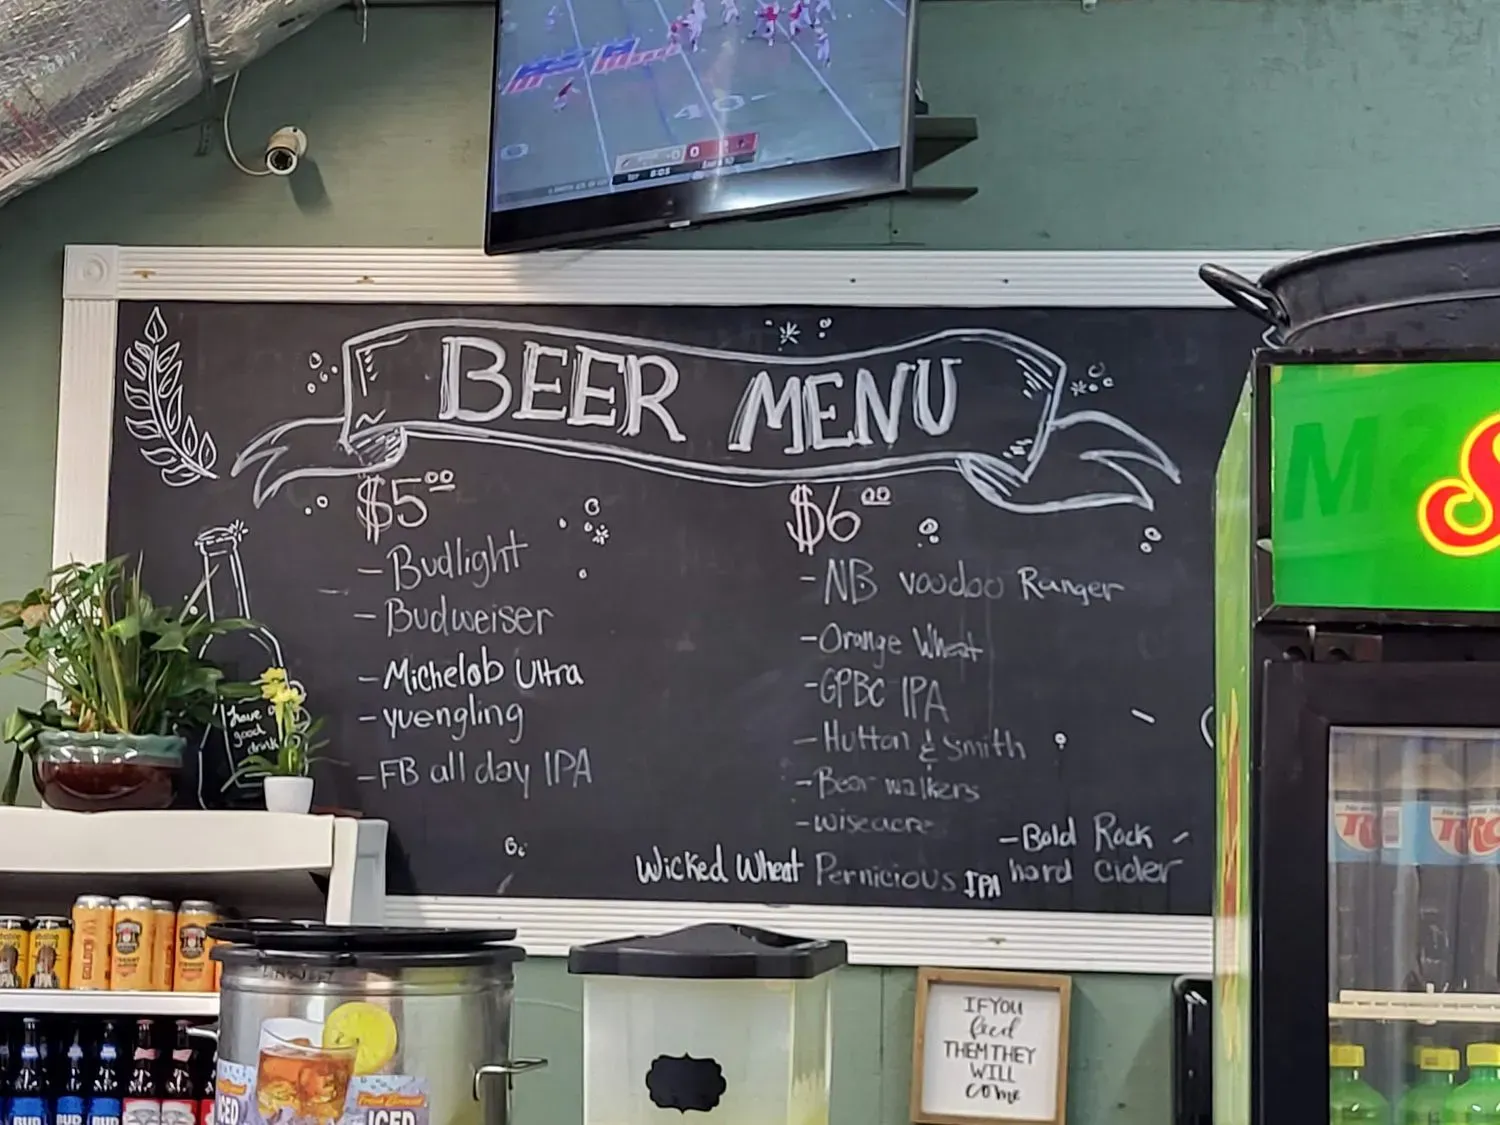 40
0
1ST 8:05
BEER MENU
$5.00
- Budlight
- Budweiser
- Michelob Ultra
- yuengling
- FB all day IPA
$6.00
- NB voodoo Ranger
- Orange Wheat
- GPBC IPA
- Hutton & Smith
- Bear walkers
- wiseacre
- Bold Rock -
hard cider
Wicked Wheat Pernicious IPA
have a
good
drink
UNSWEET
ICED
ICED
BUD
BUD
BUD
IF YOU
feed
THEM THEY
WILL
come
RC